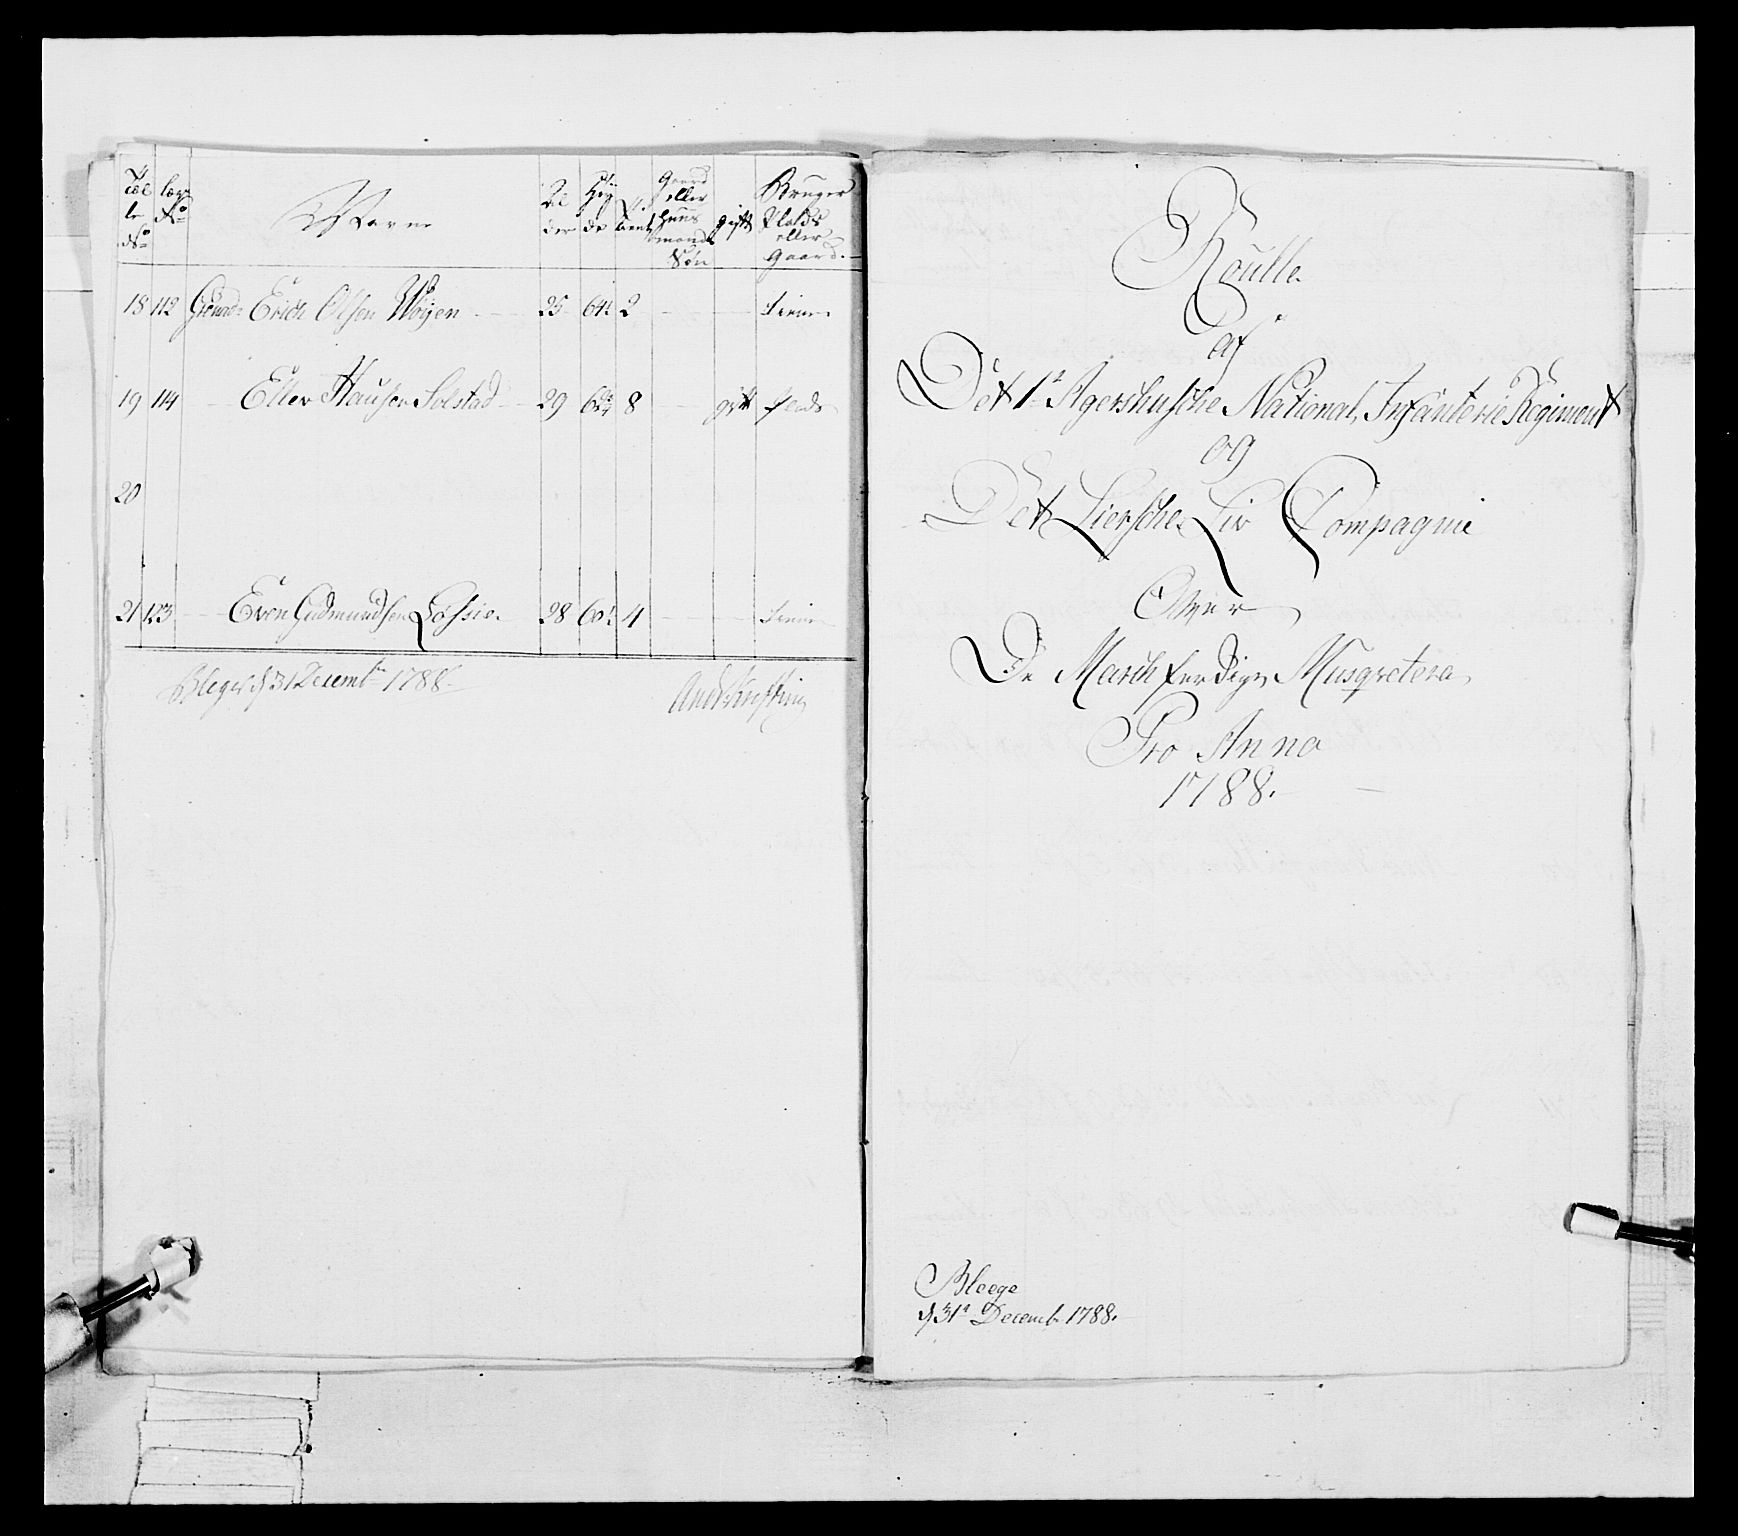 Tæl
le
No
læg
No
Navne
Al
der
Høy
de
Tient
Gaard
eller
Huus
mands
Søn
gift
Bruger
Plads
eller
Gaard.
18 112 Grenad: Erich Olsen Wøyen 25 64½ 2 tiener
19 114 Eller Hansen Solstad 29 8 gift Plads
20
21 123 Even Gudmundsen 28 60½ 4 tiener
d 31 Decembr 1788.
Roulle
af
Det 1te Agershusche National Infanterie Regiment
og
Det Liersche Liv Compagnie
Over
De Marchferdige Musqvetera
Pro Anno
1788.
Bleege
d 31te Decemb 1788.